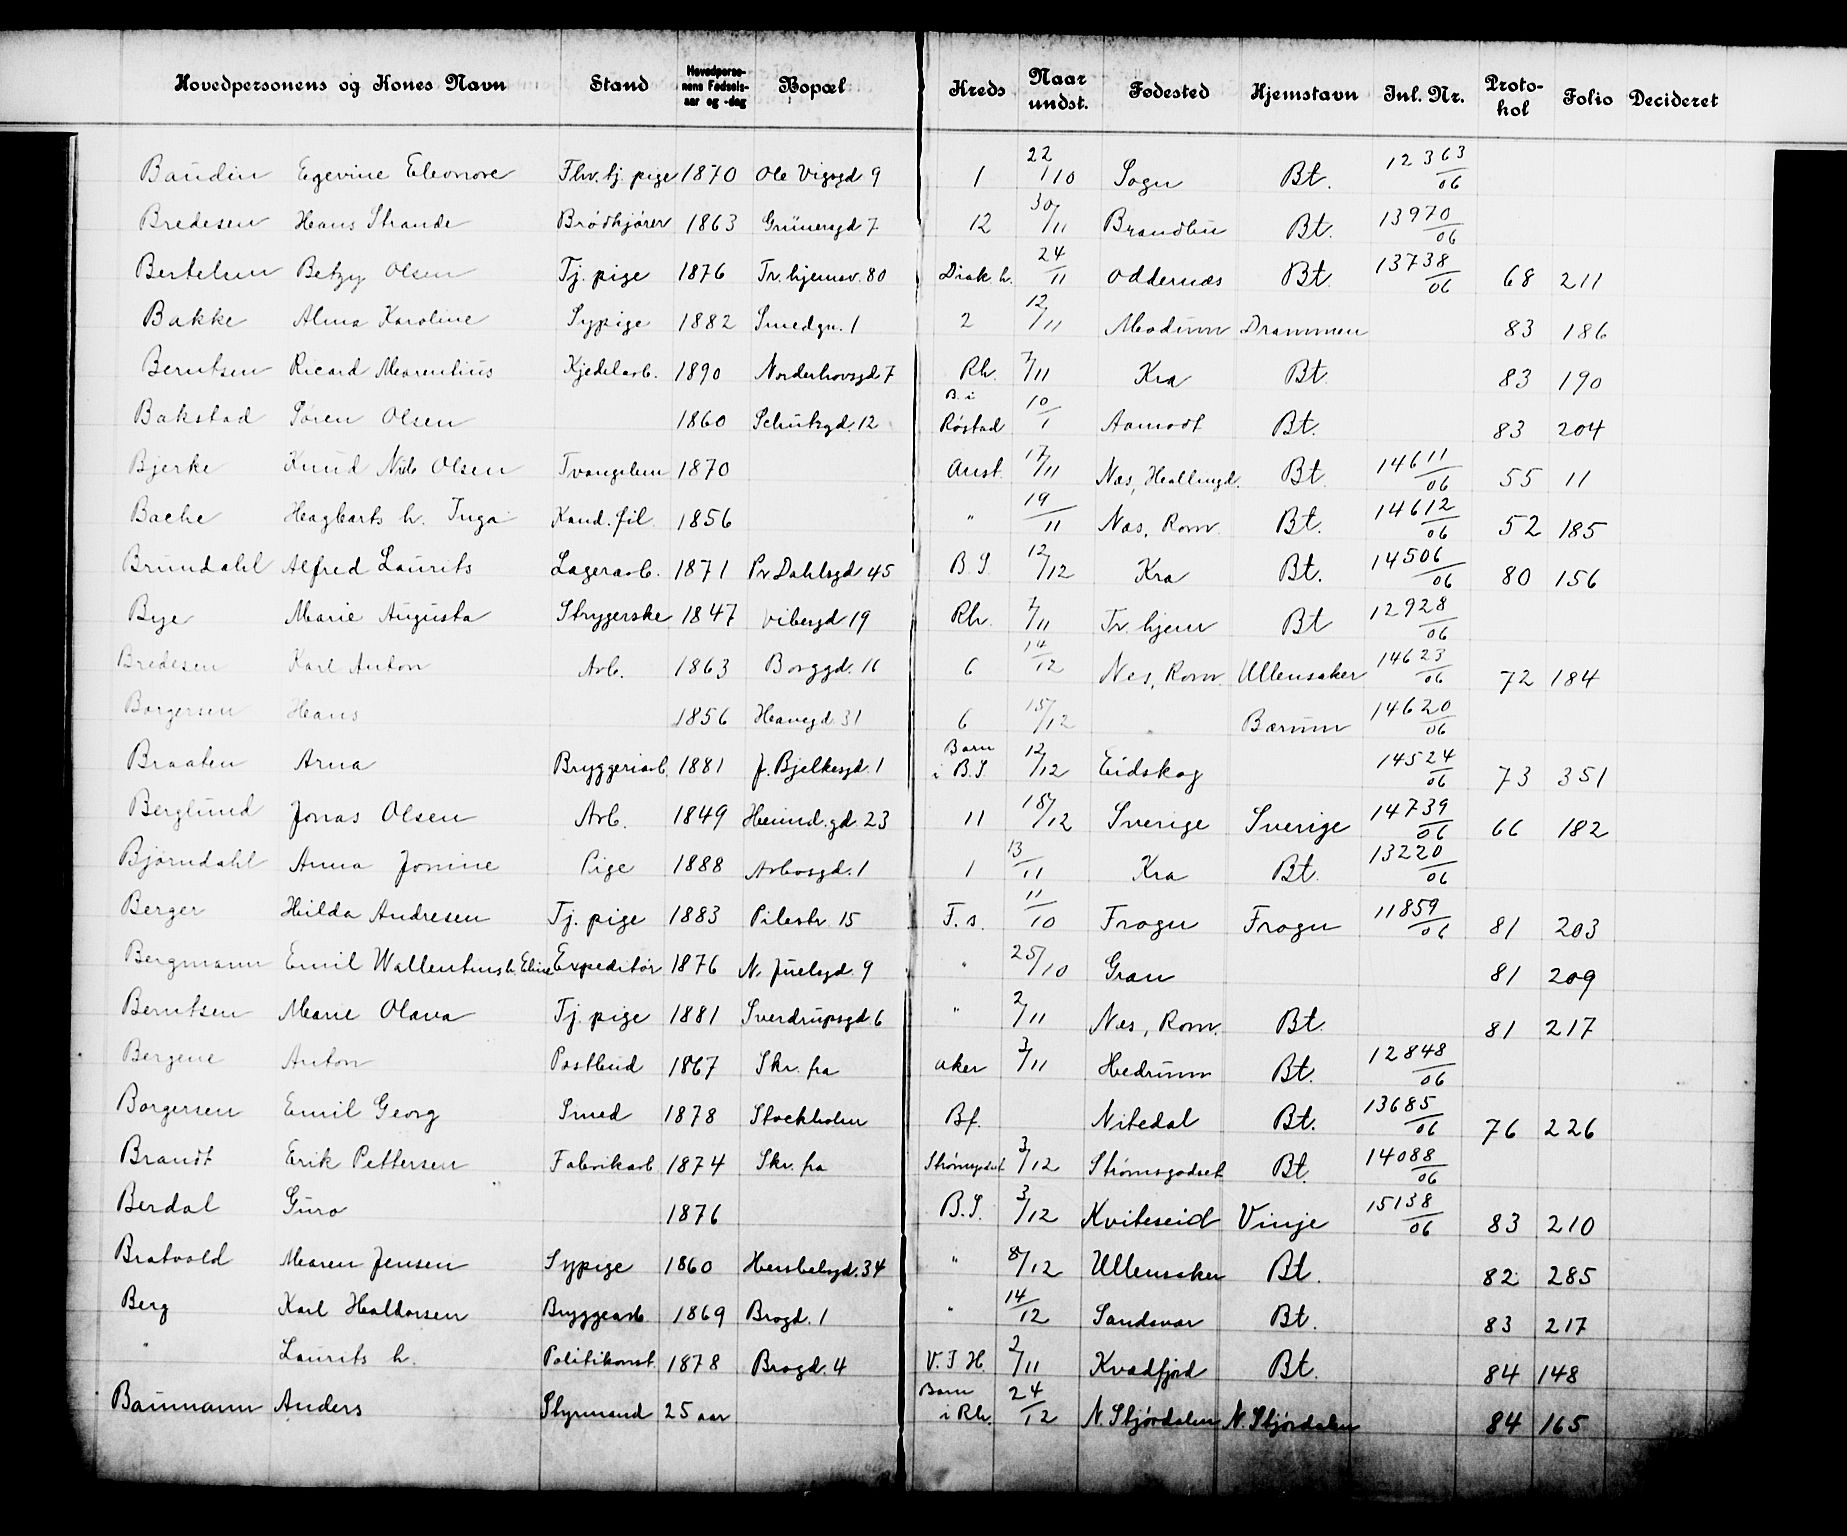 Hovedpersonens og Kones Navn Stand Hovedpersonens Fødsels-aar og -dag Bopæl Kreds Naar undst. Fødested Hjemstavn Inl. Nr. Protokol Folio Decideret
Baudin Egevine Eleonore Fhv. tj. pige 1870 Ole Vigsgd 9 1 22/10 Sogn Bt. 12363/06
Bredesen Hans Strande Brødkjører 1863 Grünersgd 7 12 30/11 Brandbu Bt. 13970/06
Bertelsen Betzy Olsen Tj. pige 1876 Tr. hjemsv. 80 Diak. h. 24/11 Oddernæs Bt. 13738/06 68 211
Bakke Alma Karoline Sypige 1882 Smedgn. 1 2 12/11 Modum Drammen 83 186
Berntsen Ricard Marentius Kjedelarb. 1890 Norderhovsgd 7 Rh. 7/11 Kra Bt. 83 190
Bakstad Søren Olsen 1860 Schultzgd. 12 B. i Røstad 10/1 Aamodt Bt. 83 204
Bjerke Knud Nils Olsen Tvangslem 1870 Anst. 17/11 Næs, Hallingd. Bt. 14611/06 55 11
Bache Hagbarts h. Inga Kand. fil. 1856 " 19/11 Næs, Rom. Bt. 14612/06 52 185
Brundahl Alfred Laurits Lagerarb. 1871 Pr Dahlsgd 45 B. S 12/12 Kra Bt. 14506/06 80 156
Bye Marie Augusta Strygerske 1847 Vibesgd 19 Rh. 7/11 Tr. hjem Bt 12928/06
Bredesen Karl Anton Arb. 1863 Borggd. 16 6 14/12 Nes, Rom. Ullensaker 14623/06 72 184
Borgersen Hans 1856 Havegd. 31 6 15/12 Bærum 14620/06
Braaten Arna Bryggeriarb. 1881 J. Bjelkesgd. 1 Barn i B. S 12/12 Eidskog 14524/06 73 351
Berglund Jonas Olsen Arb. 1849 Heimd. gd. 23 11 15/12 Sverige Sverige 14739/06 66 182
Bjørndahl Anna Jonine Pige 1888 Arbosgd. 1 1 13/11 Kra Bt. 13220/06
Berger Hilda Andresen Tj. pige 1883 Pilestr. 15 F. s. 11/10 Frogn Frogn 11859/06 81 203
Bergmann Emil Wallentins h. Eline Expeditør 1876 N. Juelsgd. 9 " 25/10 Gran 81 209
Berntsen Marie Olava Tj. pige 1881 Sverdrupsgd. 6 " 2/11 Næs, Rom. Bt. 81 217
Bergene Anton Postbud 1867 Skr. fra Aker 3/11 Hedrum Bt. 12848/06
Borgersen Emil Georg Smed 1878 Stockholm Bf. Nitedal Bt. 13685/06 76 226
Brandt Erik Pettersen Fabrikarb 1874 Skr. fra Strømsgodset 3/12 Strømsgodset Bt. 14088/06
Berdal Guro 1876 B. S. 3/12 Kviteseid Vinje 15138/06 83 210
Bratvold Maren Jensen Sypige 1860 Herslebsgd. 34 " 8/12 Ullensaker Bt. 82 285
Berg Karl Haldorsen Bryggearb. 1869 Brogd. 1 " 14/12 Sandsvær Bt. 83 217
" Laurits h. Politikonst. 1878 Brogd. 4 V. S H. 2/11 Kvædfjord Bt. 84 148
Baumann Anders Styrmand 25 aar Barn i Rh. 24/12 N. Stjørdalen N. Stjørdalen 84 165